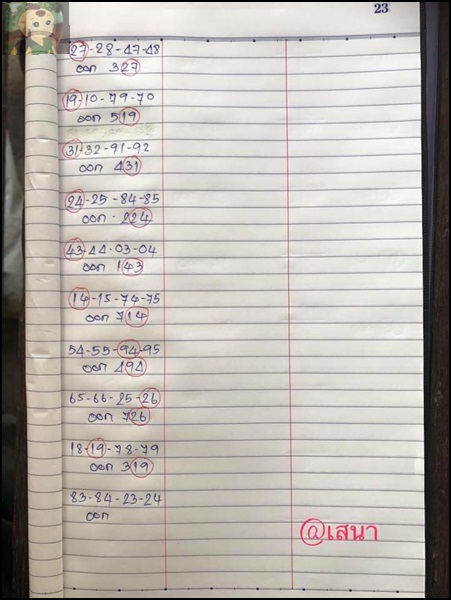 23
27-28-47-48
ออก 327
19-10-79-70
ออก 519
31-32-91-92
ออก 431
24-25-84-85
ออก - 224
43-44-03-04
ออก 143
14-15-74-75
ออก 714
54-55-94-95
ออก 494
65-66-25-26
ออก 726
18-19-78-79
ออก 319
83-84-23-24
ออก
@เสนา